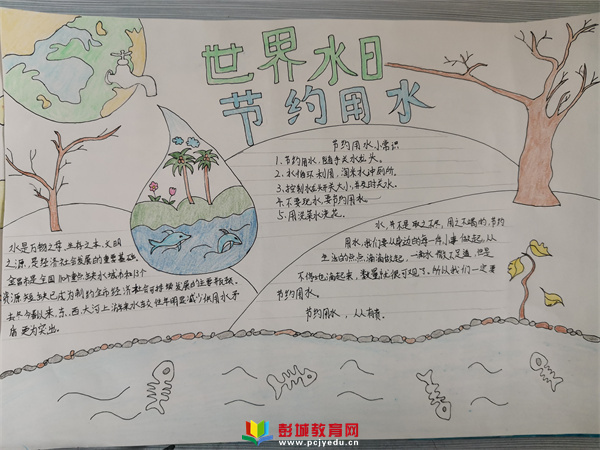 世界水日
节约用水
节约用水小常识
1.节约用水,随手关水龙头。
2.水循环利用,淘米水冲厕所。
3.控制水龙头开关大小,并及时关水。
4.不要玩水,要节约用水。
5.用洗菜水浇花。
水是万物之母、生存之本、文明
之源,是经济社会发展的重要基础。
金昌市是全国110个重点缺水城市和13个
资源短缺已成为制约金昌经济社会可持续发展的主要瓶颈。
去年今春以来,东、西大河上游来水较往年明显减少,供用水矛
盾更为突出。
水,并不是取之不尽,用之不竭的,节约
用水,我们要从身边的每一件小事做起,从
生活的点点滴滴做起,一滴水微不足道,但是
不停地滴起来,数量就很可观了。所以我们一定要
节约用水。
节约用水,从
彭城教育网
www.pcjyedu.cn